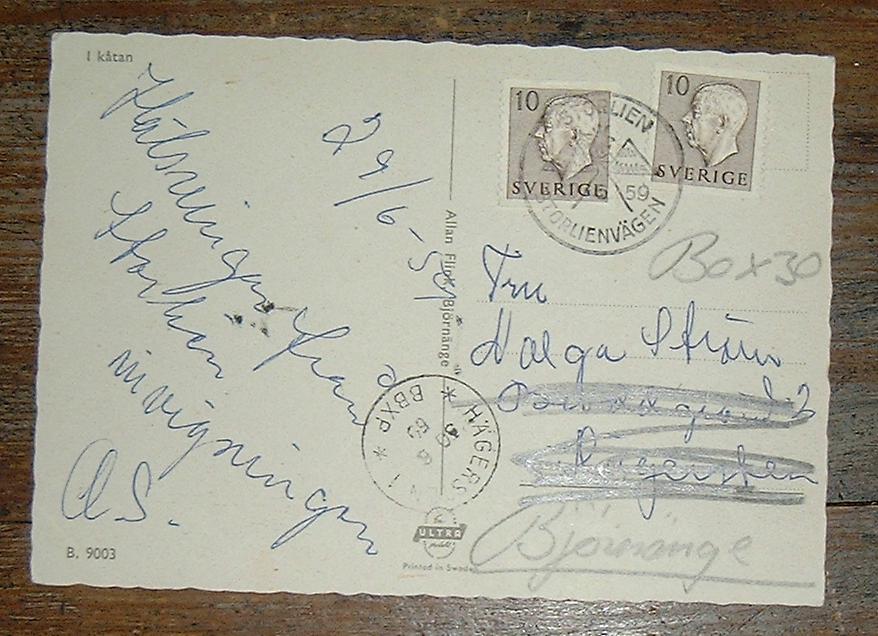 I kåtan
29/6 - 59
Hälsningar från
Storlien
invigningen
A S.
B. 9003
Allan Flink, Björnänge
10
SVERIGE
10
SVERIGE
STORLIEN
59
STORLIENVÄGEN
Box 30
Fru
Helga Ström
Hägersten
Björnänge
HÄGERSTEN 1
30
6
59
* BBXP *
ULTRA
Printed in Sweden